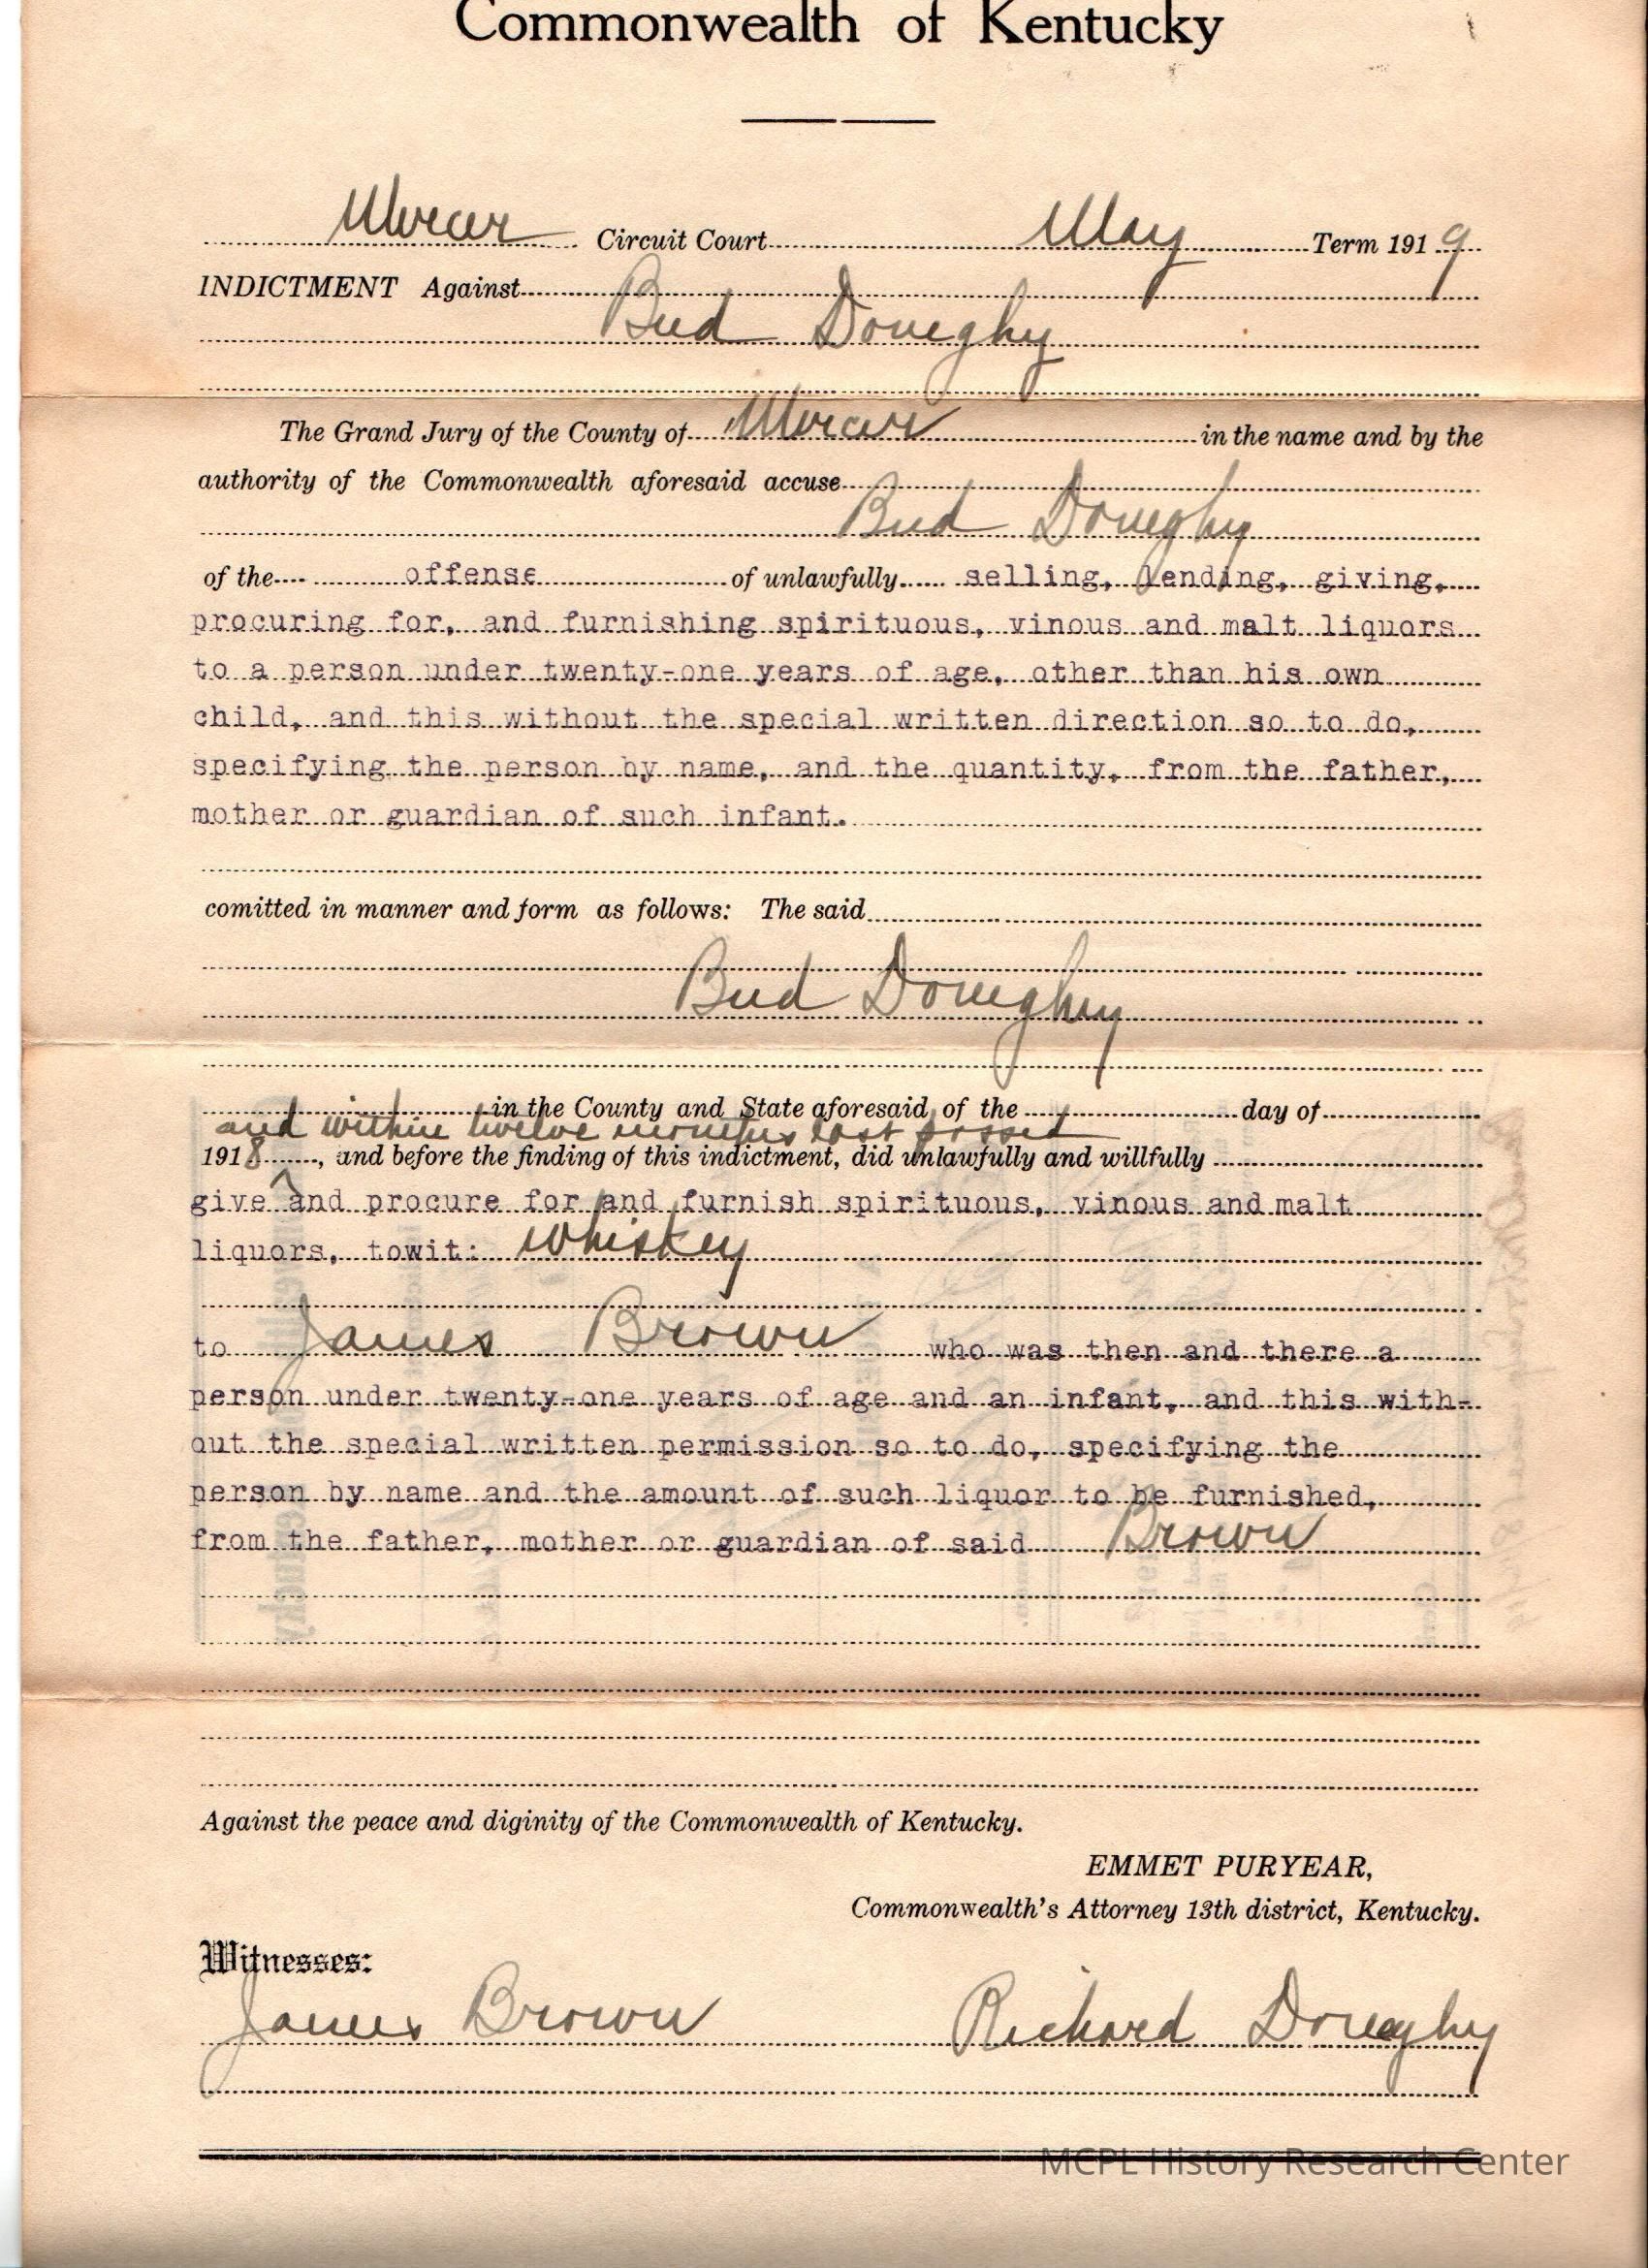 Commonwealth of Kentucky
Mercer Circuit Court May Term 1919
INDICTMENT Against
Bud Doneghy
The Grand Jury of the County of Mercer in the name and by the
authority of the Commonwealth aforesaid accuse
Bud Doneghy
of the offense of unlawfully selling, lending, giving,
procuring for, and furnishing spirituous, vinous and malt liquors
to a person under twenty-one years of age, other than his own
child, and this without the special written direction so to do,
specifying the person by name, and the quantity, from the father,
mother or guardian of such infant.
comitted in manner and form as follows: The said
Bud Doneghy
in the County and State aforesaid, of the day of
and within twelve months last passed
1918, and before the finding of this indictment, did unlawfully and willfully
give and procure for and furnish spirituous, vinous and malt
liquors, towit: Whiskey
to James Brown who was then and there a
person under twenty-one years of age and an infant, and this with-
out the special written permission so to do, specifying the
person by name and the amount of such liquor to be furnished,
from the father, mother or guardian of said Brown
Against the peace and diginity of the Commonwealth of Kentucky.
EMMET PURYEAR,
Commonwealth's Attorney 13th district, Kentucky.
Witnesses:
James Brown Richard Doneghy
MCPL History Research Center